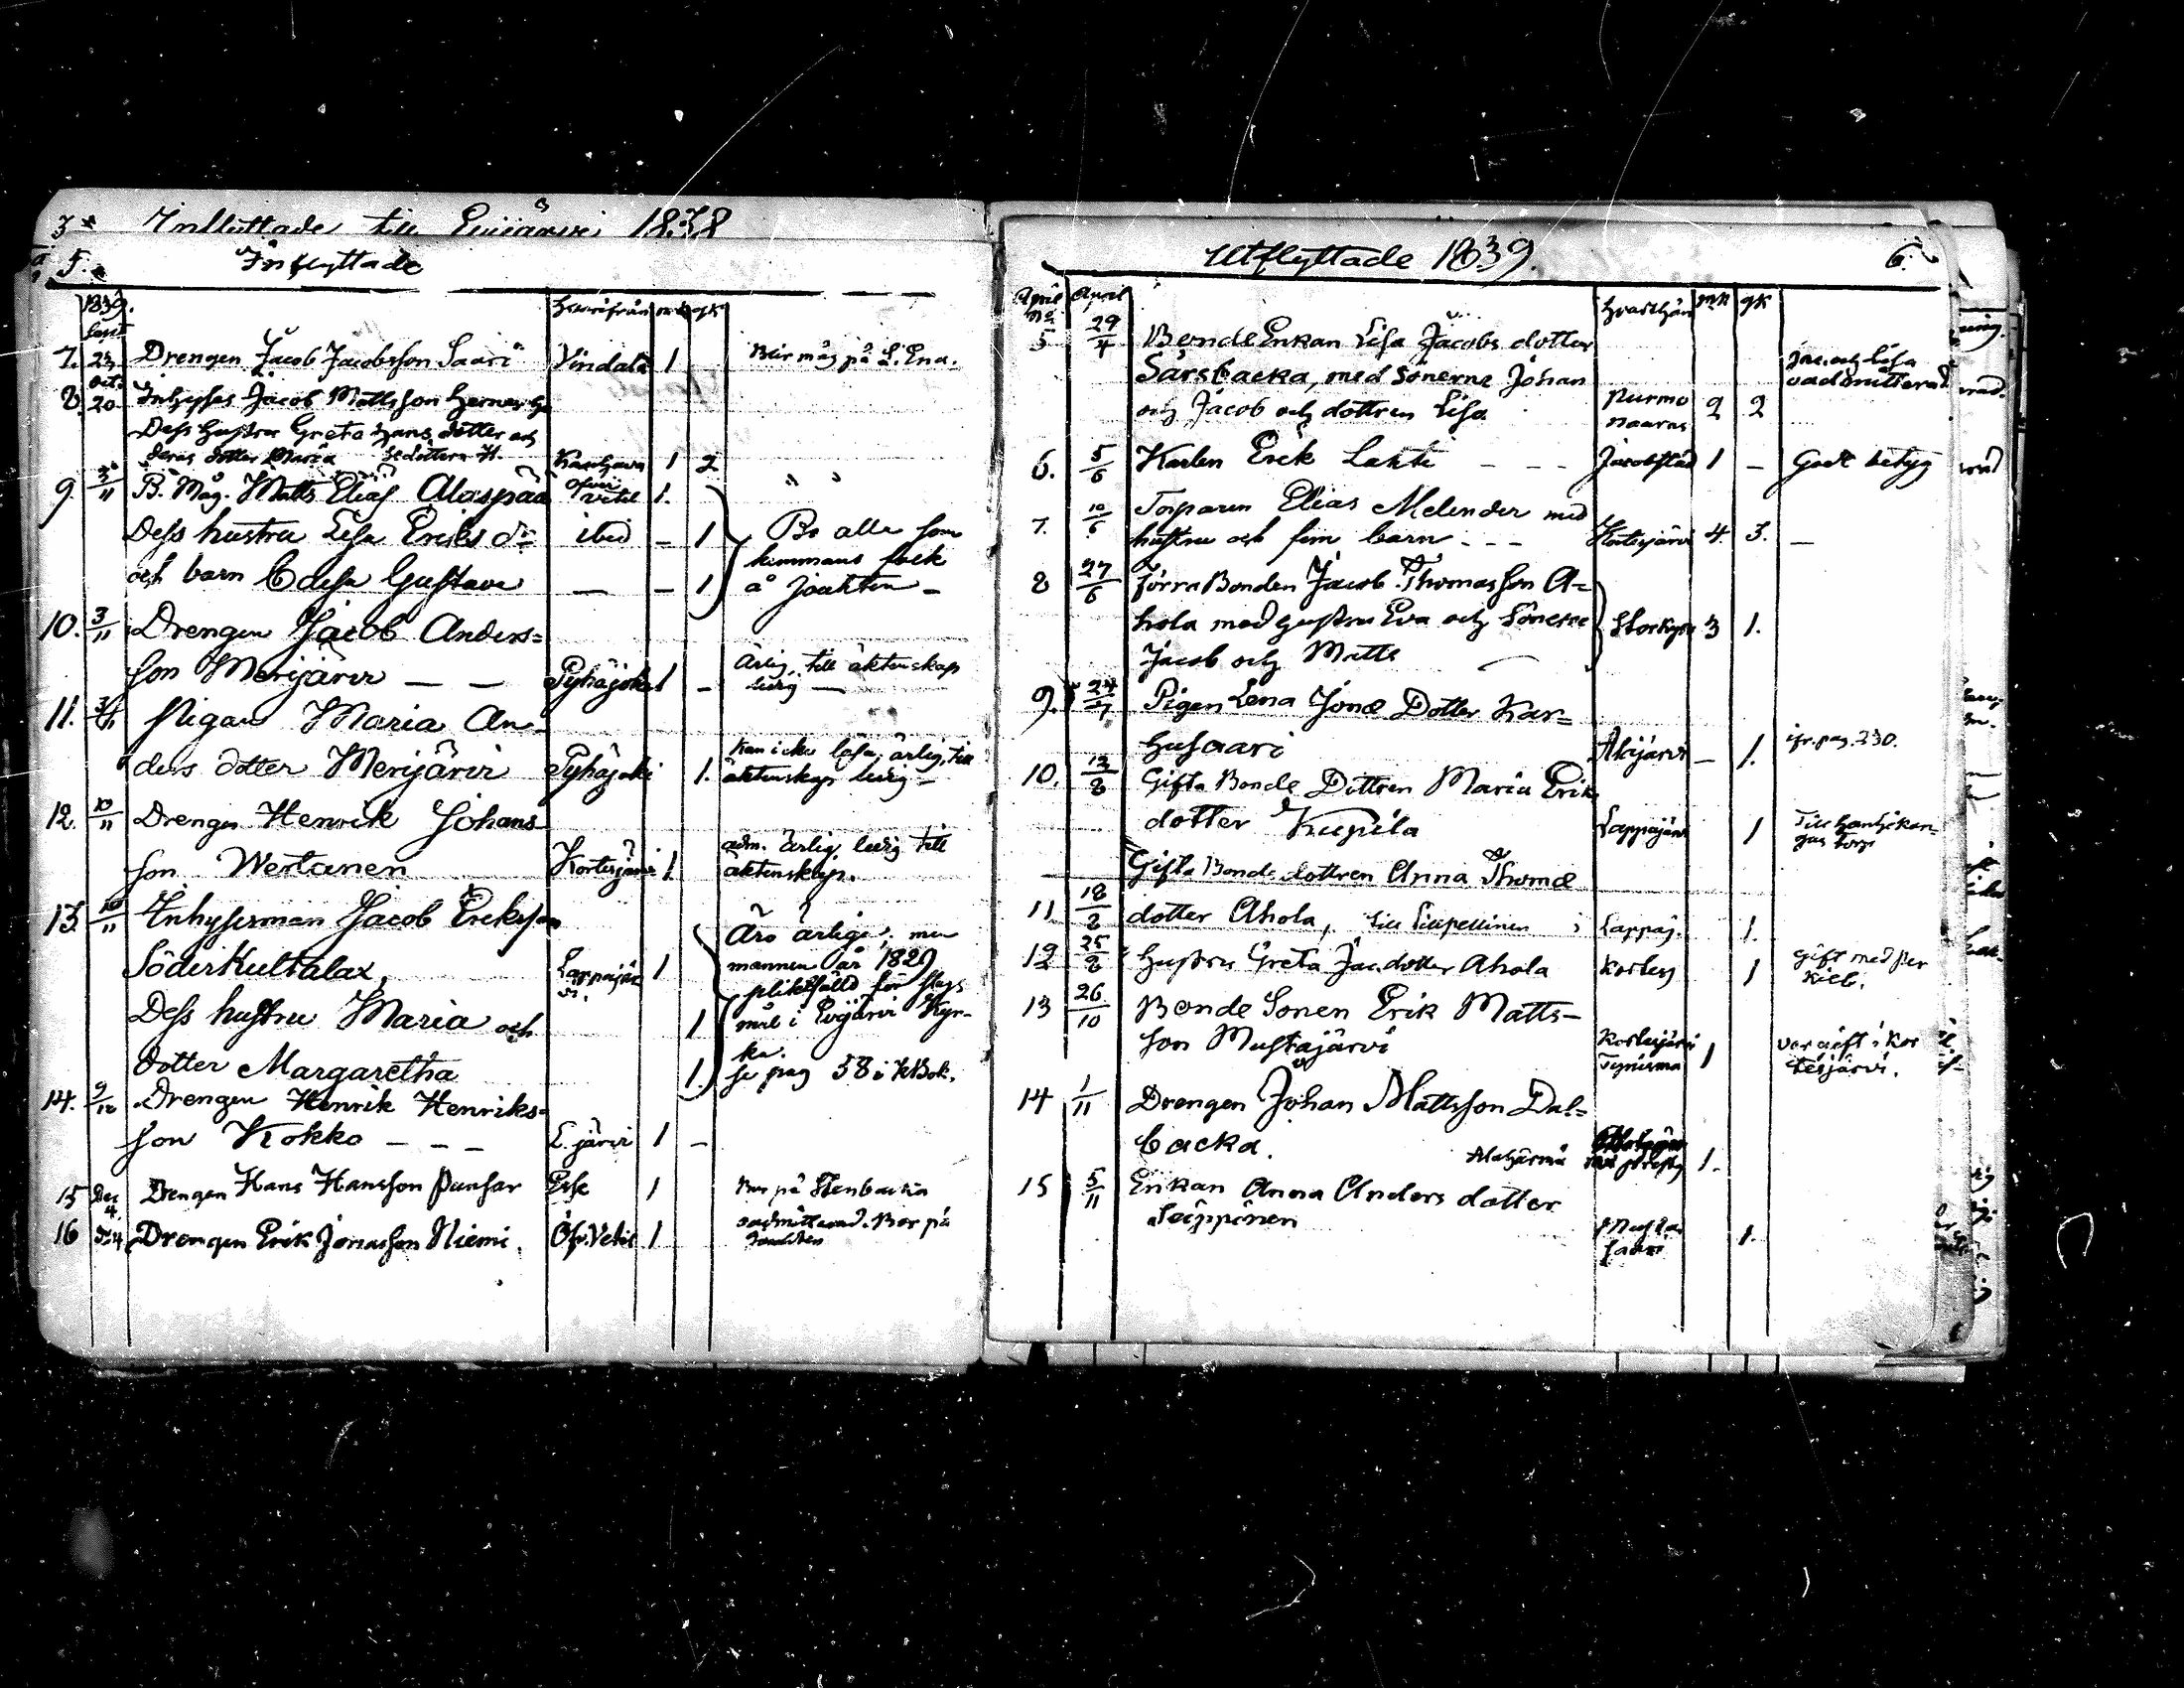 3 Inflyttade till Evijärvi 1838
5. Inflyttade
1839. hvarifrån mk qk
Sept
7. 23 Drengen Jacob Jacobsson Saari Vindala 1 Blir måg på L. Ena.
Oct.
8. 20 Inhyses Jacob Mattsson
Dess hustru Greta Hans dotter och
deras dotter Maria Kaustava 1 2
9. 3/11 B. Måg. Matts Elias Alaspää Öfver vetil 1. " "
Dess hustru Lisa Eriks dr ibid – 1 Bo alla som
och barn Edesa Gustava – – 1 kommans folk
å Joakten –
10. 3/11 Drengen Jacob Anders=
son Merijärvi – – Pyhäjoki 1 – Ärlig, till äktenskap
ledig –
11. 3/11 Pigan Maria An-
ders dotter Merijärvi Pyhäjoki 1. Kan icke läsa, ärlig, till
äktenskap ledig –
12. 10/11 Drengen Henrik Johans
son Wertanen Kortesjärvi 1. adm. ärlig ledig till
äktenskap.
13. 10/11 Inhysesman Jacob Eriksson
Söderkultalax, Lappajärvi. 1 Äro ärliga, men
mannen år 1829
pliktfälld för slags
Dess hustru Maria och 1 mål i Evijärvi Kyr-
ka.
dotter Margaretha 1. se pag 58 i KBok.
14. 9/12 Drengen Henrik Henriks=
son Kokko – – – L. järvi 1 –
15 Dec 4 Drengen Hans Hansson Punsar Esse 1 Bor på Stenbacka
16 Drengen Erik Jonasson Niemi. Öfv. Vetil 1 oadmitterad. Bor på
Utflyttade 1839. 6.
April No April hvarthän mk qk
5 29/4 Bonde Enkan Lisa Jacobs dotter
Särsbacka, med Sönerne Johan Jac. och Lisa
oadmitterad
och Jacob och dottren Lisa. Purmo 2 2
6. 5/6 Karlen Erik Lahti – – – Jacobstad 1 – Godt betyg
7. 10/6 Torparen Elias Melender med
hustru och fem barn – – – Kortesjärvi 4. 3. –
8 27/6 Förra Bonden Jacob Thomasson A=
hola med hustru Eva och Sönerne Storkyro 3 1.
Jacob och Matts
9. 24/7 Pigan Lena Jonæ Dotter Kar=
husaari Alajärvi – 1. ifr. pag. 230.
10. 13/8 Gifta Bonde Dottren Maria Erik
dotter Kupila Lappajärvi 1 Till
torp
Gifta Bonde dottren Anna Thomæ
11 18/8 dotter Ahola, till i Lappaj. 1.
12 25/8 Hustru Greta Jac.dotter Ahola Kortesj 1 Gift med
13 26/10 Bonde Sonen Erik Matts–
son Mustajärvi Kortesjärvi 1 var gift i Kor
tesjärvi.
14 1/11 Drengen Johan Mattsson Dal=
backa. Alahärmä 1.
15 5/11 Enkan Anna Anders dotter
Seippinen Mustasaari 1.